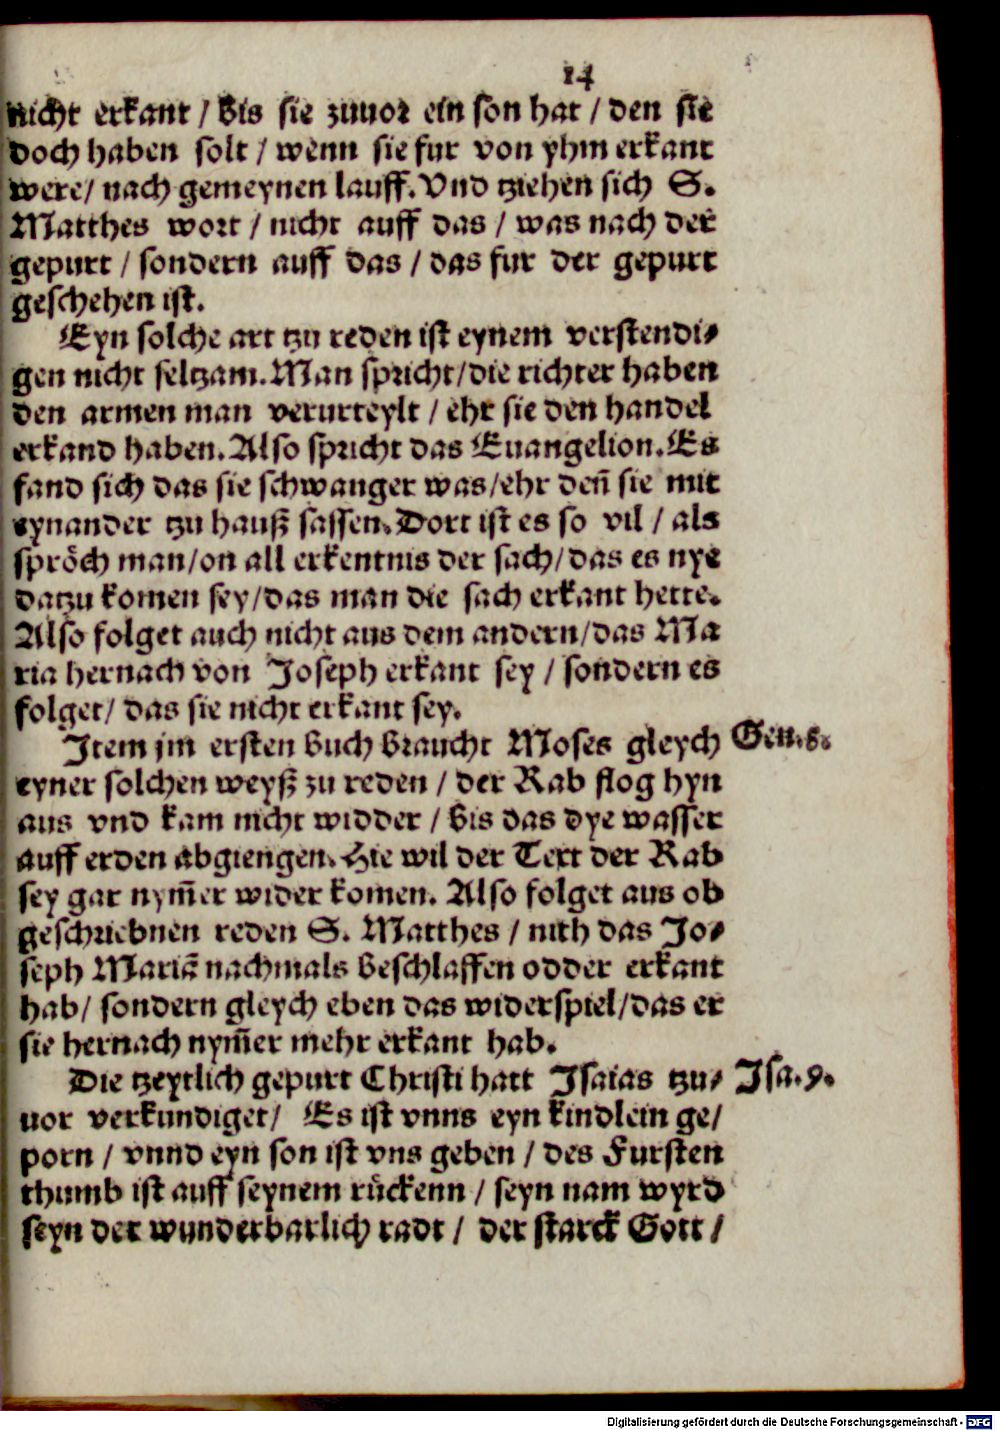 14
nicht erkant / bis sie zuuor ein son hat / den sie
doch haben solt / wenn sie fur von yhm erkant
were / nach gemeynen lauff. Vnd tziehen sich S.
Matthes wort / nicht auff das / was nach der
gepurt / sondern auff das / das fur der gepurt
geschehen ist.
Eyn solche art tzu reden ist eynem verstendi-
gen nicht seltzam. Man spricht / die richter haben
den armen man verurteylt / ehr sie den handel
erkand haben. Also spricht das Euangelion. Es
fand sich das sie schwanger was / ehr den̄ sie mit
eynander tzu hauß sassen. Dort ist es so vil / als
sprőch man / on all erkentnis der sach / das es nye
datzu komen sey / das man die sach erkant hette.
Also folget auch nicht aus dem andern / das Ma
ria hernach von Joseph erkant sey / sondern es
folget / das sie nicht erkant sey.
Item jm ersten buch braucht Moses gleych Gen. 8.
eyner solchen weyß zu reden / der Rab flog hyn
aus vnd kam nicht widder / bis das dye wasser
auff erden abgiengen. Hie wil der Text der Rab
sey gar nym̄er wider komen. Also folget aus ob
geschriebnen reden S. Matthes / nith das Jo-
seph Mariā nachmals beschlaffen odder erkant
hab / sondern gleych eben das widerspiel / das er
sie hernach nym̄er mehr erkant hab.
Die tzeytlich gepurt Christi hatt Isaias tzu- Isa. 9.
uor verkundiget / Es ist vnns eyn kindlein ge/
porn / vnnd eyn son ist vns geben / des Fursten
thumb ist auff seynem růckenn / seyn nam wyrd
seyn der wunderbarlich radt / der starck Gott /
Digitalisierung gefördert durch die Deutsche Forschungsgemeinschaft - DFG